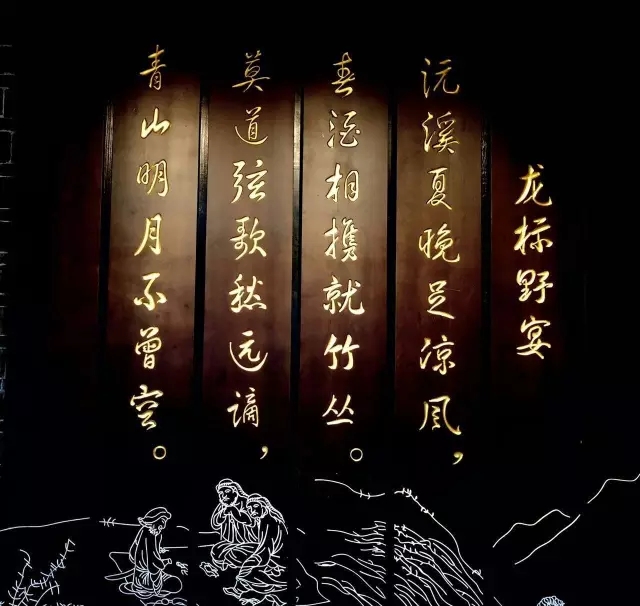 龙标野宴
沅溪夏晚足凉风，
春酒相携就竹丛。
莫道弦歌愁远谪，
青山明月不曾空。